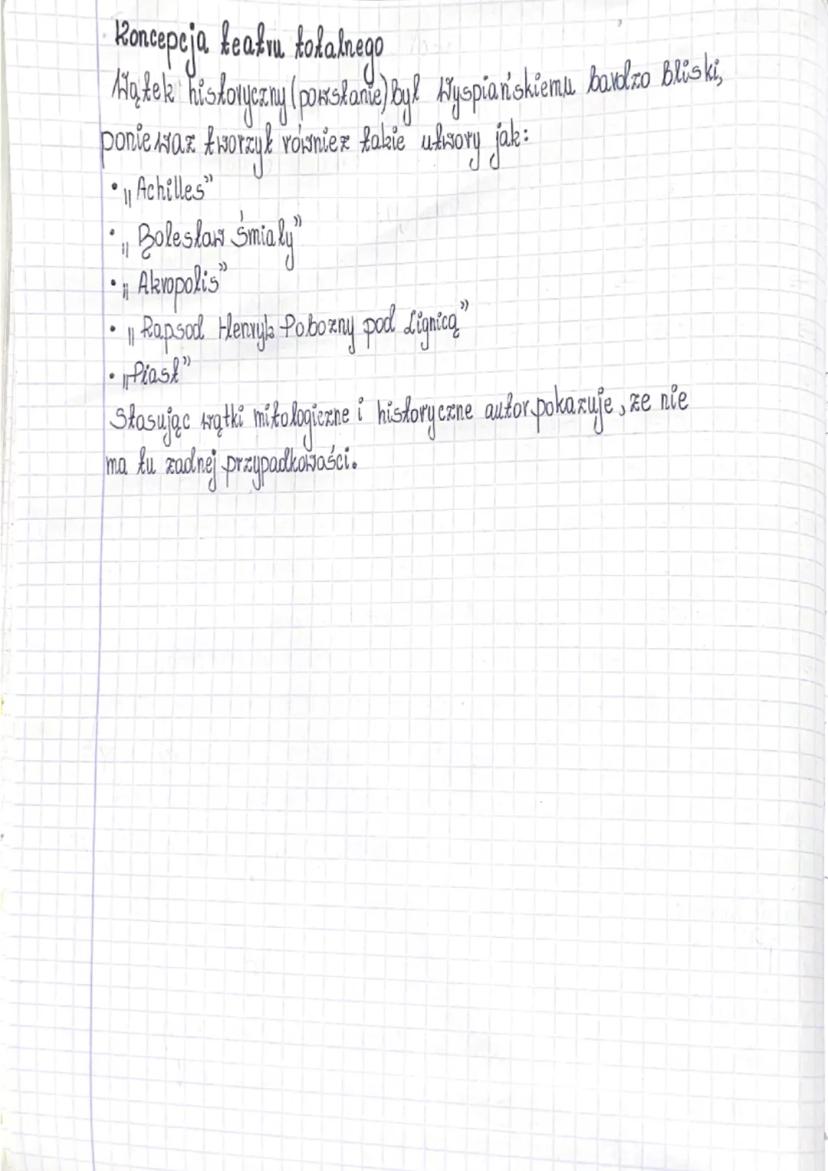 Koncepcja teatru totalnego
Wątek historyczny (powstanie) był Wyspiańskiemu bardzo bliski,
ponieważ tworzył również takie utwory jak:
• „Achilles”
• „Bolesław Śmiały”
• „Akropolis”
• „Rapsod Henryk Pobożny pod Lignicą”
• „Piast”
Stosując wątki mitologiczne i historyczne autor pokazuje, że nie
ma tu żadnej przypadkowości.